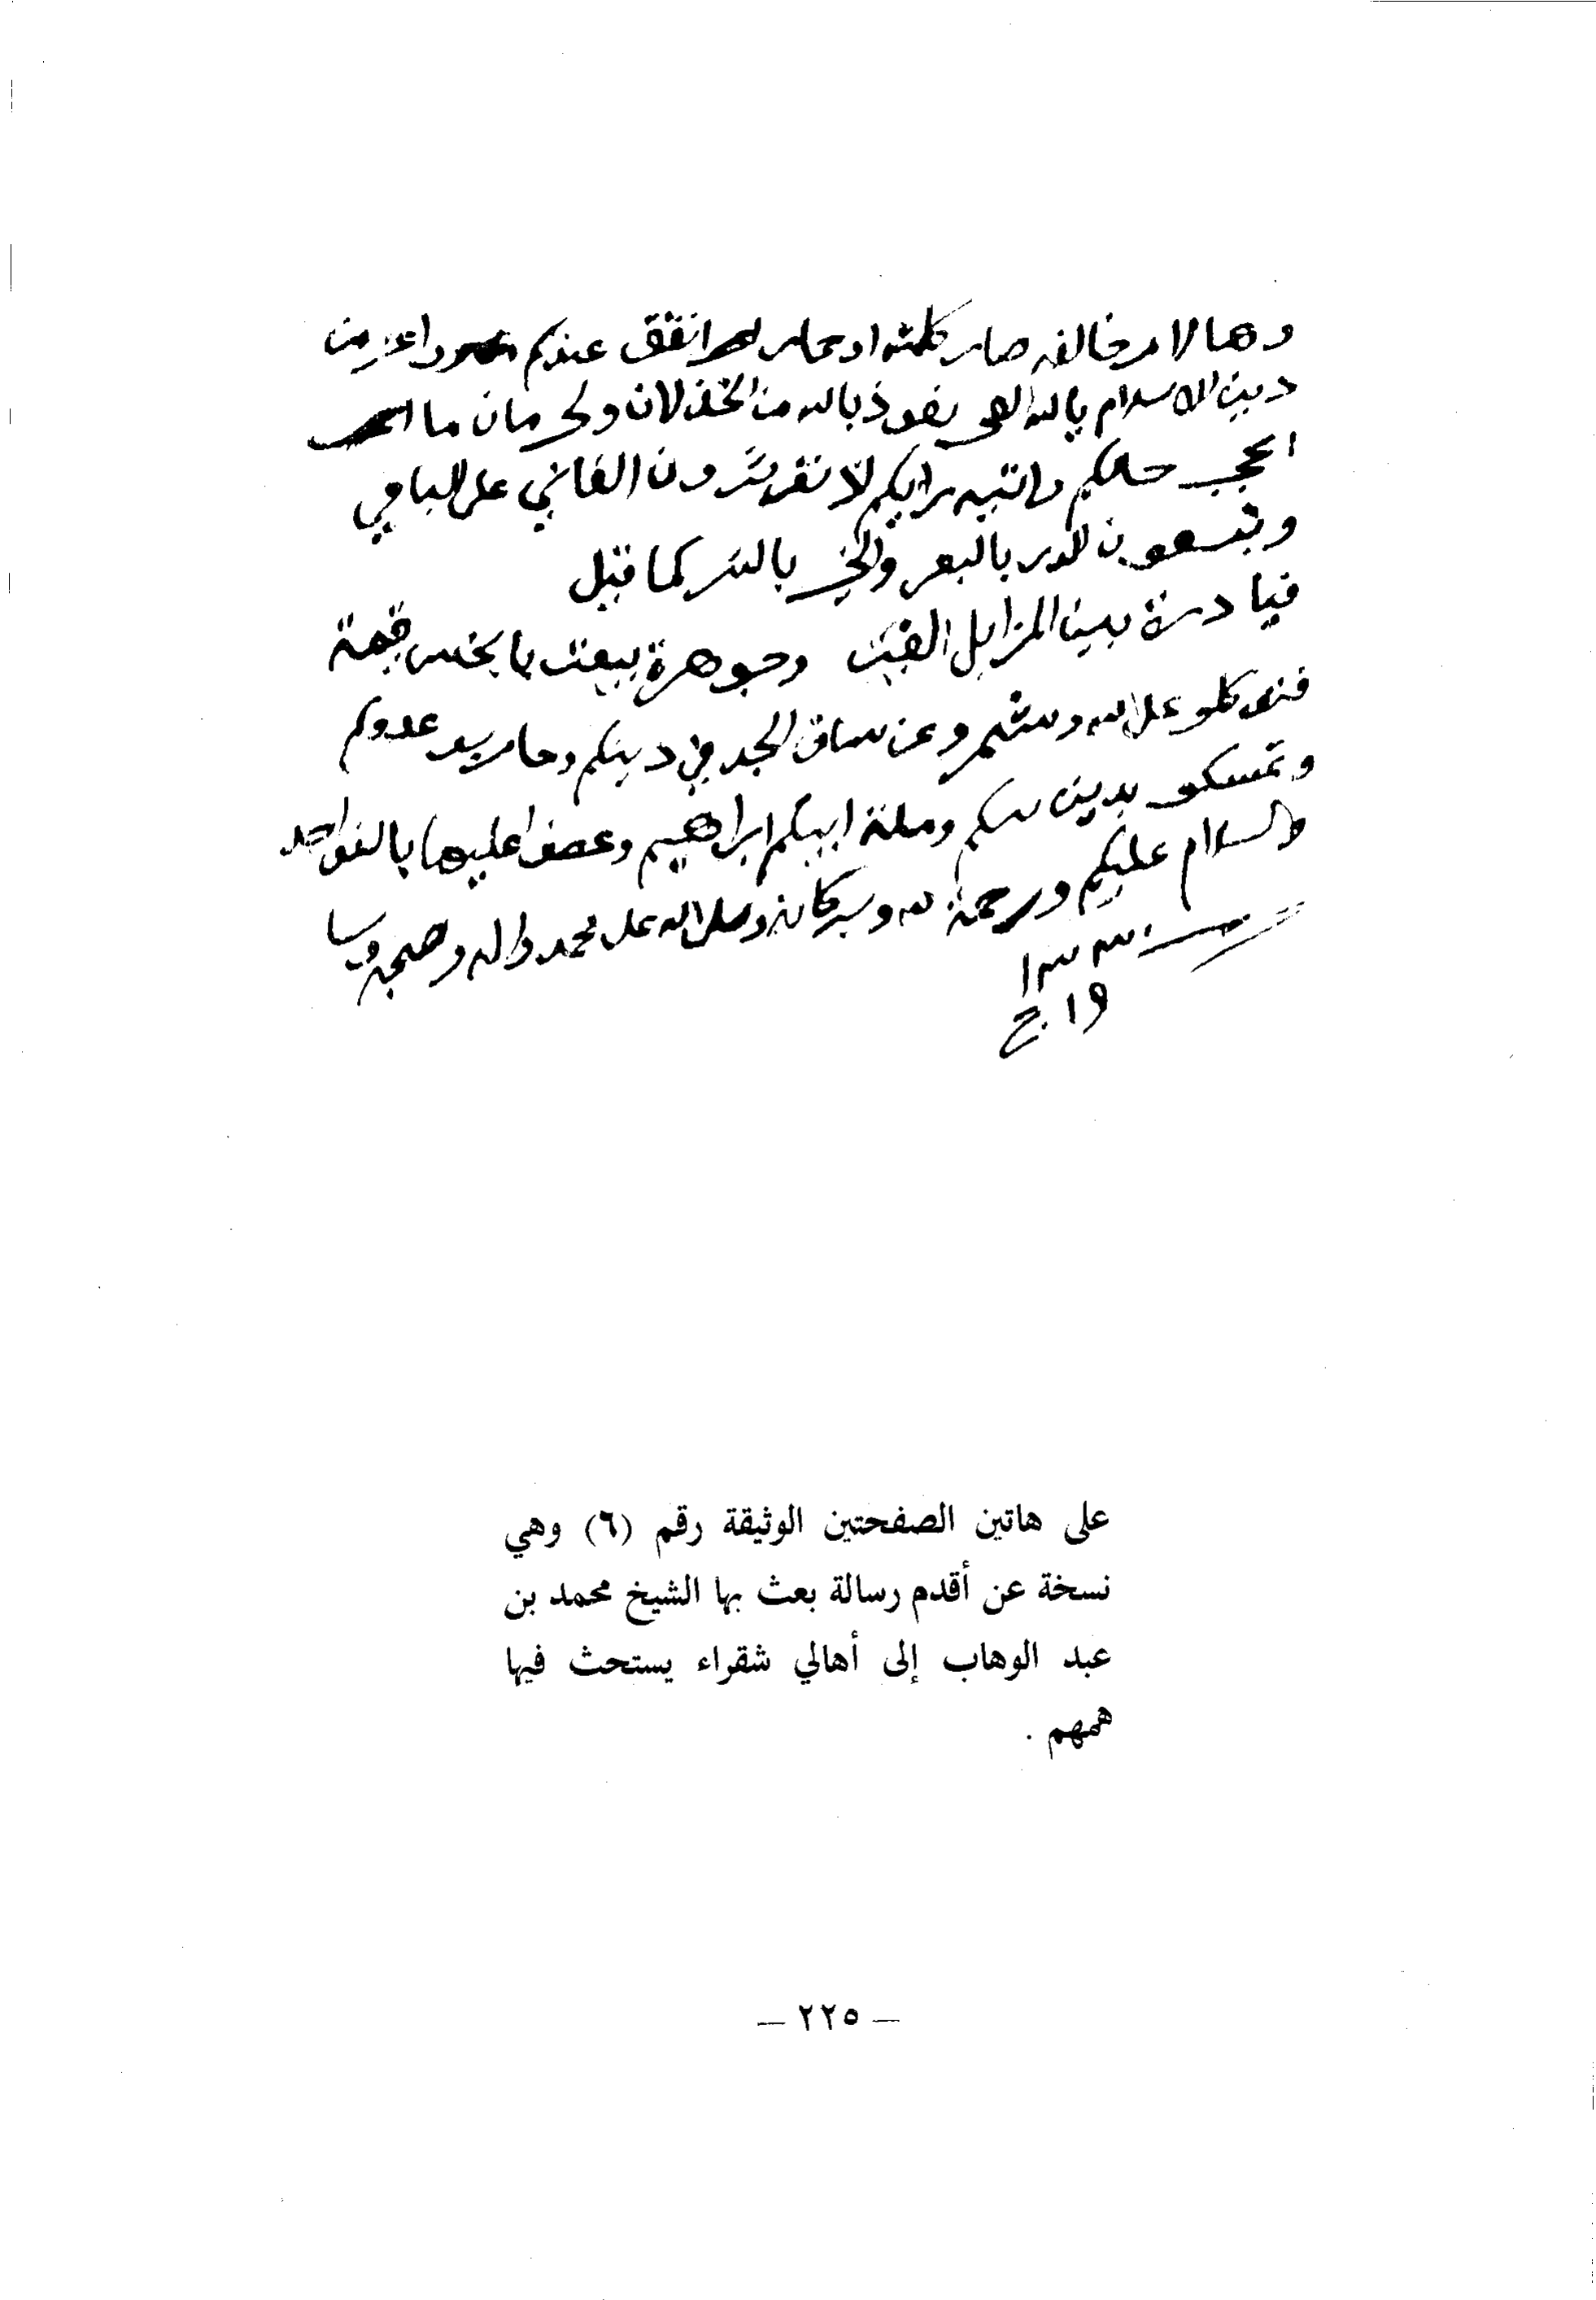 وهالامر خالفه صار كلمته او حلم انفق عندكم واعز من
دين الاسلام يا لله العجب نعوذ بالله من الخذلان ولحرمان ما
اعجب حالكم واتيه رايكم لا تؤثرون الفاني على الباقي
وتبيعون الدر بالبعر والخير بالشر كما قيل
فيا درة بين المزابل القيت وجوهرة بيعت بابخس قيمة
فتوكلو على الله وشمرو عن ساق الجد في دينكم وحاربو عدوكم
وتمسكو بدين ربكم وملة ابيكم ابراهيم وعضوا عليها بالنواجد
والسلام عليكم ورحمة الله وبركاته وصلى الله على محمد واله وصحبه وسلم
سنة ١٣٣
١٩ ج
على هاتين الصفحتين الوثيقة رقم (٦) وهي
نسخة عن أقدم رسالة بعث بها الشيخ محمد بن
عبد الوهاب إلى أهالي شقراء يستحث فيها
هممهم .
— ٢٢٥ —